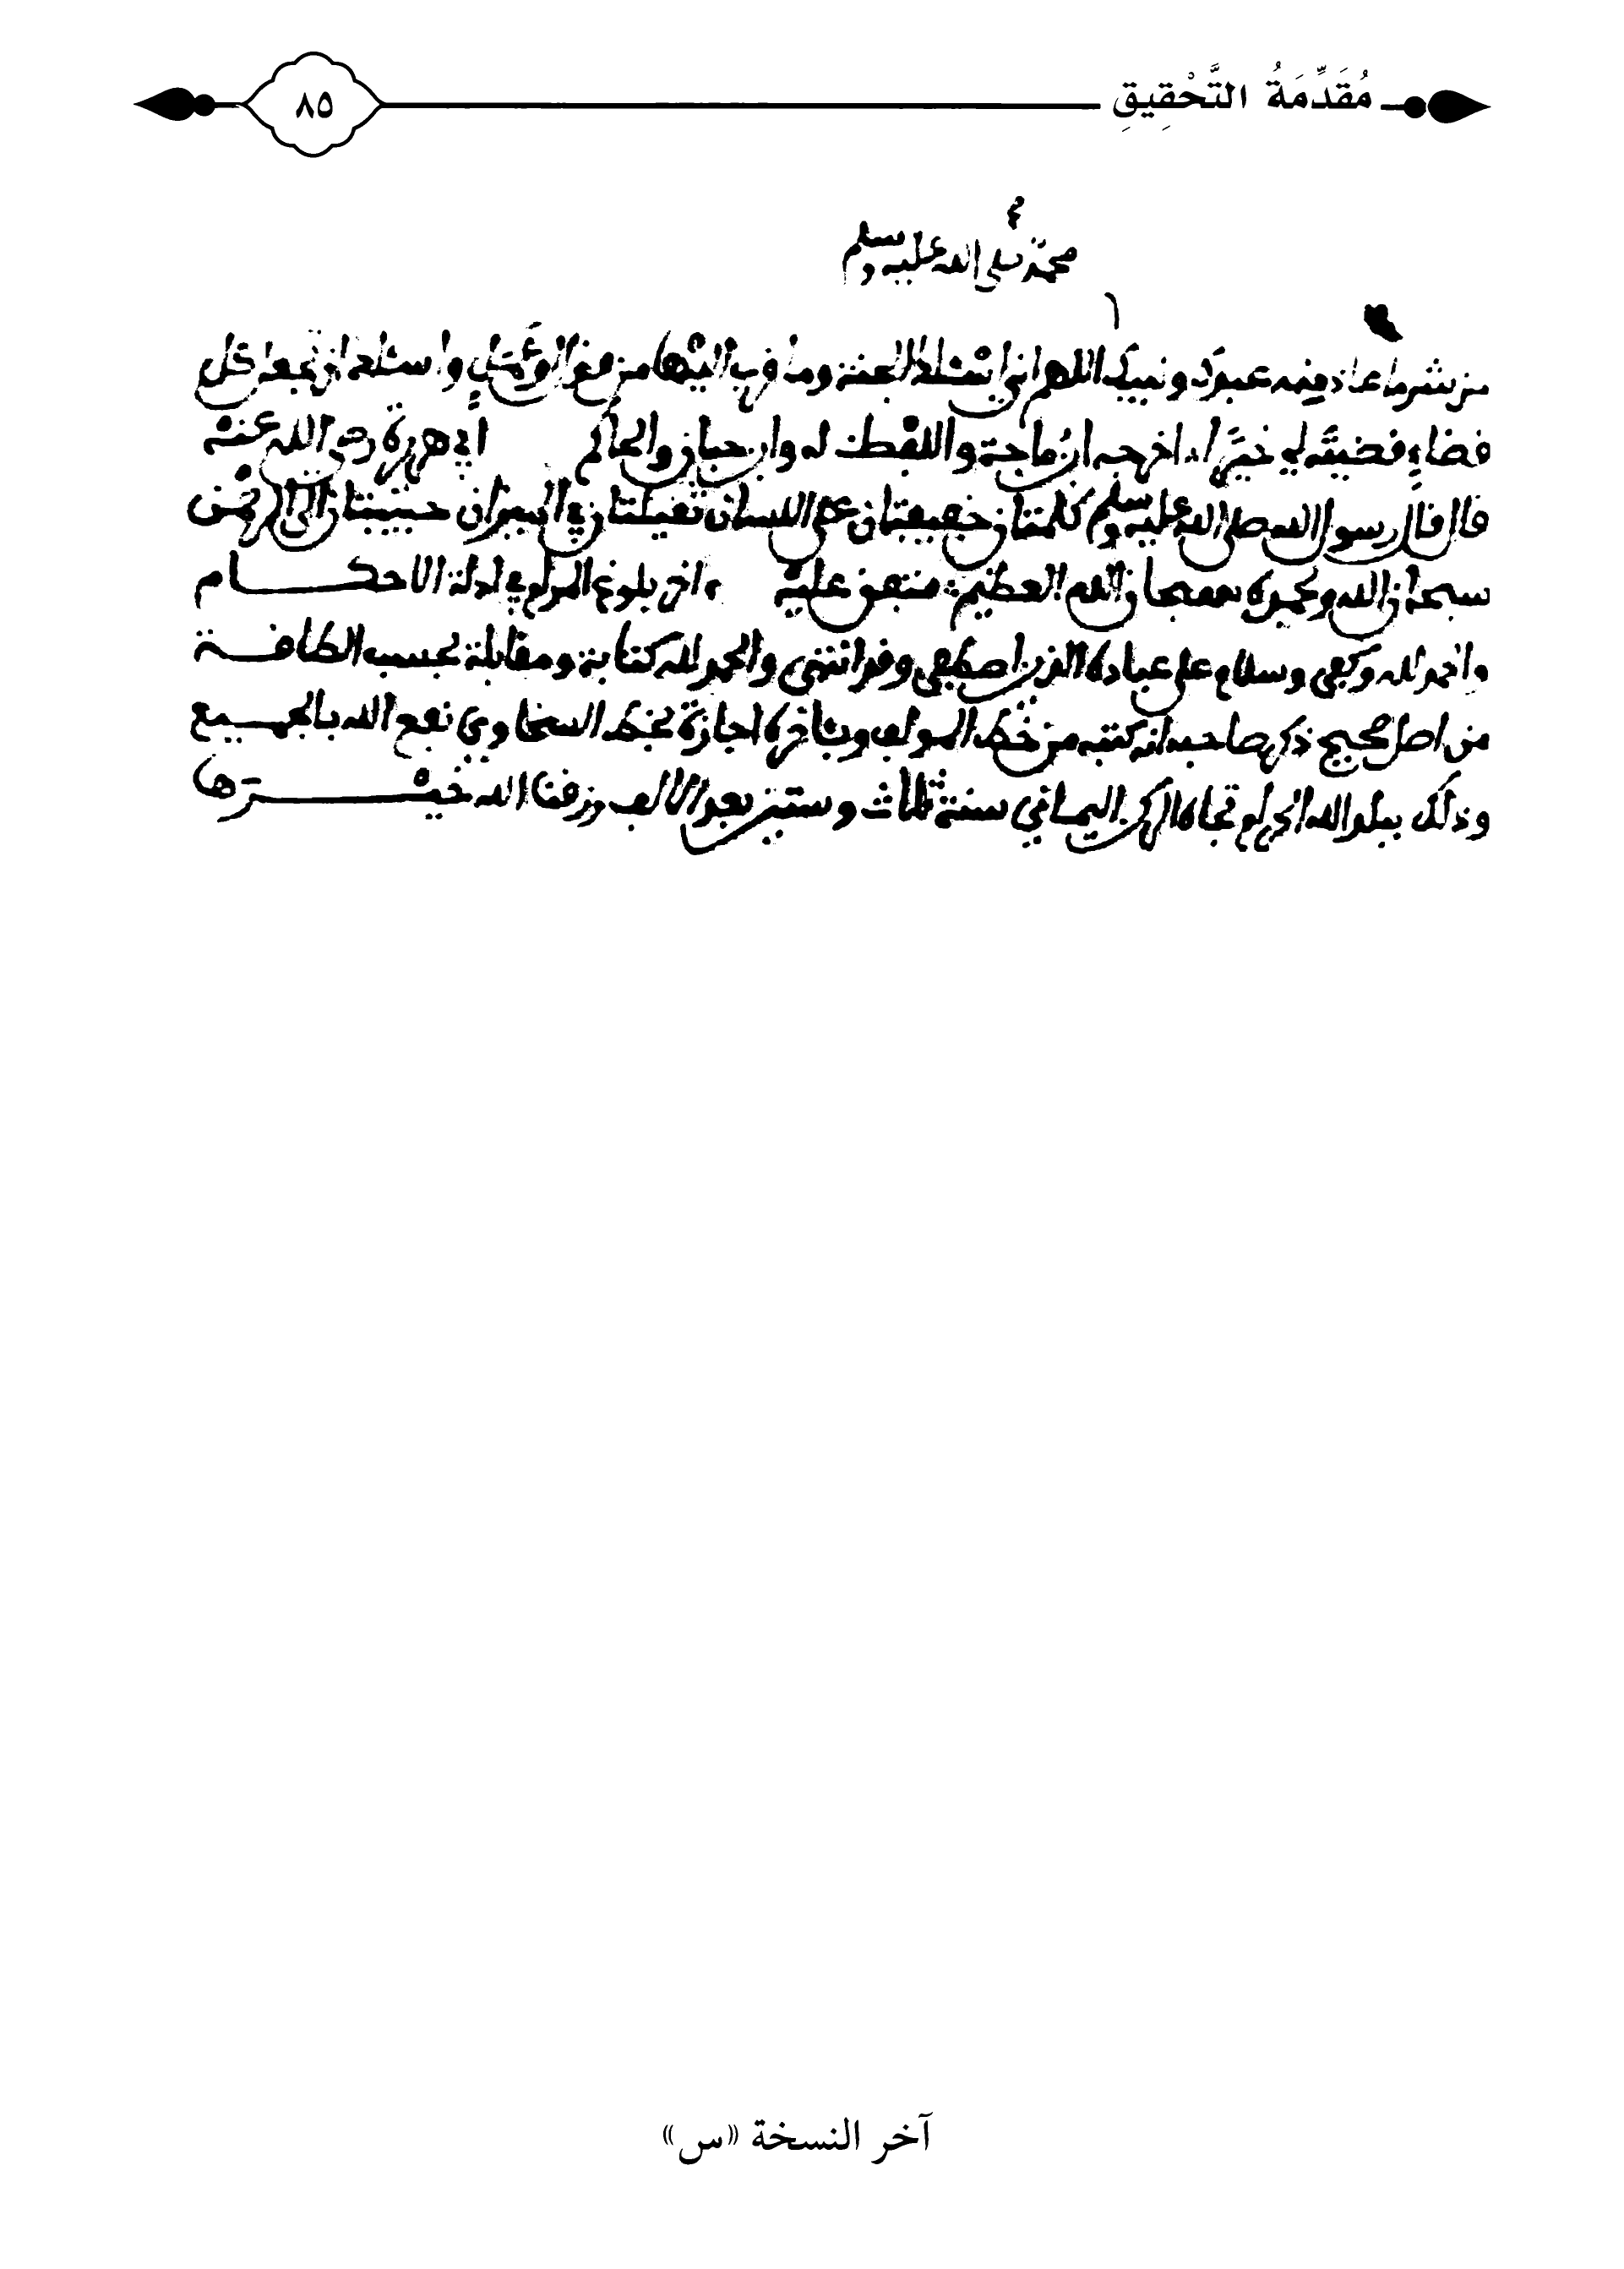 مُقَدِّمَةُ التَّحْقِيقِ
٨٥
محمد صلى الله عليه وسلم
من شر ما عاذ منه عبدك ونبيك اللهم اني اسئلك الجنة وما قرب اليها من قول او عمل واسئلك ان تجعل كل
قضاء قضيته لي خيرا اخرجه ابن ماجة واللفظ له وابن حبان والحاكم ابي هريرة رضي الله عنه
قال قال رسول الله صلى الله عليه وسلم كلمتان خفيفتان على اللسان ثقيلتان في الميزان حبيبتان الى الرحمن
سبحان الله وبحمده سبحان الله العظيم متفق عليه اخر بلوغ المرام في ادلة الاحكام
والحمد لله وكفى وسلام على عباده الذين اصطفى وقد انتهى والحمد لله كتابة ومقابلة بحسب الطاقة
من اصل صحيح ذكر صاحبه انه كتبه من خط المولف وباخره اجازة بخط السخاوي نفع الله بالجميع
وذلك ببلد الله الحرام تجاه الركن اليماني سنة ثلاث وستين بعد الالف رزقنا الله خيرها
آخر النسخة «س»